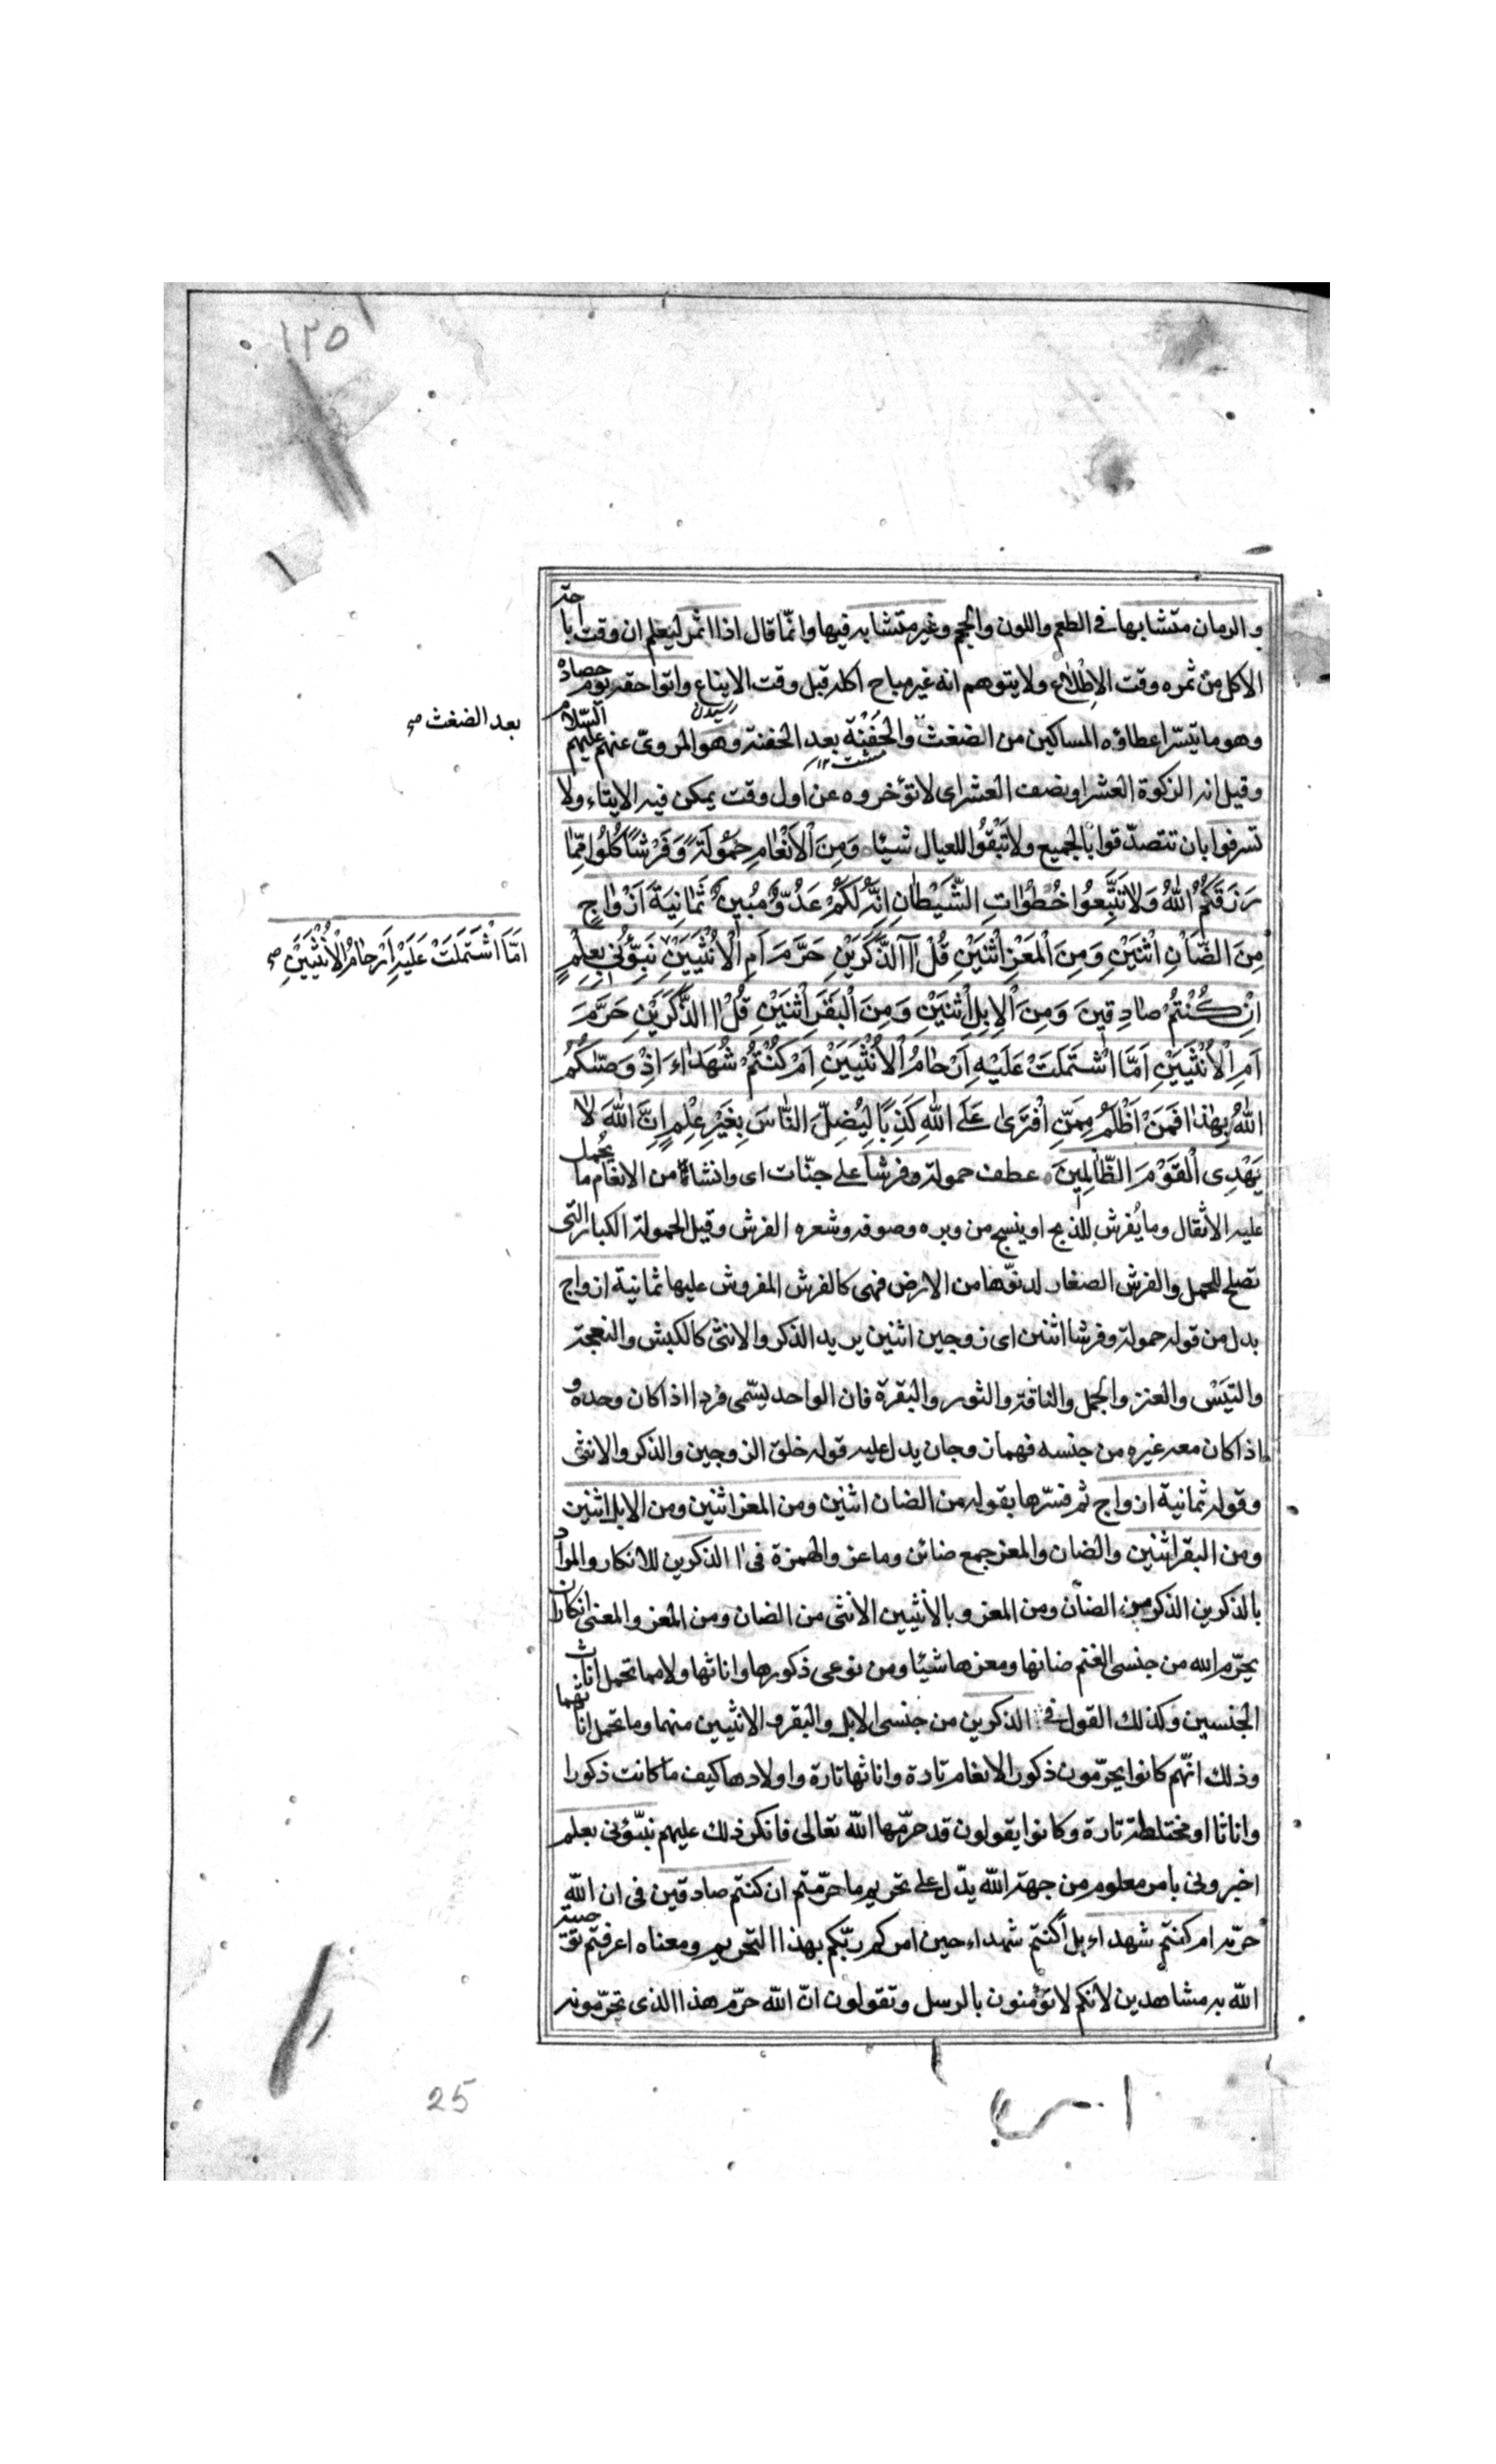 ١٢٥
والرمان متشابها فى الطعم واللون والحجم وغير متشابه فيها وانّما قال اذا اثمر ليعلم ان وقت اباحة
الاكل من ثمره وقت الاِطْلاع ولا يتوهم انه غير مباح اكله قبل وقت الايناع واتوا حقه يوم حصاده
رسيدن
وهو ما يتسّر اعطاؤه المساكين من الضغث والحَفْنَة بعد الحفنة وهو المروىّ عنهم عليهم السّلام
بعد الضغث صح
مشت ١٢
وقيل انه الزكوة العشر او نصف العشر اى لا تؤخروه عن اول وقت يمكن فيه الايتاء ولا
تسرفوا بان تتصدّقوا بالجميع ولا تَبْقُوا للعيال شيئا وَمِنَ الْاَنْعٰامِ حَمُولَةً وَفَرْشًا كُلُوا مِمّٰا
رَزَقَكُمُ اللّٰهُ وَلا تَتَّبِعُوا خُطُوٰاتِ الشَّيْطٰانِ اِنَّهُ لَكُمْ عَدُوٌّ مُبِينٌ ثَمٰانِيَةَ اَزْوٰاجٍ
مِنَ الضَّاْنِ اثْنَيْنِ وَمِنَ الْمَعْزِ اثْنَيْنِ قُلْ آالذَّكَرَيْنِ حَرَّمَ اَمِ الْاُنْثَيَيْنِ نَبِّؤُنِى بِعِلْمٍ
اَمَّا اشْتَمَلَتْ عَلَيْهِ اَرْحٰامُ الْاُنْثَيَيْنِ صح
اِنْ كُنْتُمْ صٰادِقِينَ وَمِنَ الْاِبِلِ اثْنَيْنِ وَمِنَ الْبَقَرِ اثْنَيْنِ قُلْ ءاالذَّكَرَيْنِ حَرَّمَ
اَمِ الْاُنْثَيَيْنِ اَمَّا اشْتَمَلَتْ عَلَيْهِ اَرْحٰامُ الْاُنْثَيَيْنِ اَمْ كُنْتُمْ شُهَدٰاءَ اِذْ وَصّٰيكُمُ
اللّٰهُ بِهٰذٰا فَمَنْ اَظْلَمُ مِمَّنِ افْتَرٰى عَلَى اللّٰهِ كَذِبًا لِيُضِلَّ النّٰاسَ بِغَيْرِ عِلْمٍ اِنَّ اللّٰهَ لٰا
يَهْدِى الْقَوْمَ الظّٰالِمِينَ عطف حمولة وفرشا على جنّات اى وانشاء من الانعام ما يُحمل
عليه الاثقال وما يُفرش للذبح او ينسج من وبره وصوفه وشعره الفرش وقيل الحمولة الكبار التى
تصلح للحمل والفرش الصغار لدنوّها من الارض فهى كالفرش المفروش عليها ثمانية ازواج
بدل من قوله حمولة وفرشا اثنين اى زوجين اثنين يريد الذكر والانثى كالكبش والنعجة
والتَيْس والعنز والجمل والناقة والثور والبقرة فان الواحد يسّمى فردا اذا كان وحده و
اذا كان معه غيره من جنسه فهما زوجان يدل عليه قوله خلق الزوجين والذكر والانثى
وقوله ثمانية ازواج ثم فسّرها بقوله من الضان اثنين ومن المعز اثنين ومن الابل اثنين
ومن البقر اثنين والضان والمعز جمع ضائن وماعز والهمزة فى ءا الذكرين للانكار والمراد
بالذكرين الذكر من الضان ومن المعز وبالانثيين الانثى من الضان ومن المعز والمعنى انكار ان
يحرّم الله من جنسى الغنم ضانها ومعزها شيئا ومن نوعى ذكورها واناثها ولا مما تحمل اناث
الجنسين وكذلك القول فى الذكرين من جنسى الابل والبقر والانثيين منهما وما تحمل اناثهما
وذلك انّهم كانوا يحرّمون ذكور الانعام تارة واناثها تارة واولادها كيف ما كانت ذكورا
واناثا او مختلطة تارة وكانوا يقولون قد حرّمها اللّه تعالى فانكر ذلك عليهم نبّؤنى بعلم
اخبرونى بامر معلوم من جهة اللّه يدّل على تحريم ما حرّمتم ان كنتم صادقين فى ان اللّه
حرّمه ام كنتم شهداء بل اكنتم شهداء حين امركم ربّكم بهذا التحريم ومعناه اعرفتم توصية
اللّه به مشاهدين لانكم لا تؤمنون بالرسل وتقولون انّ اللّه حرّم هذا الذى تحرّمونه
25